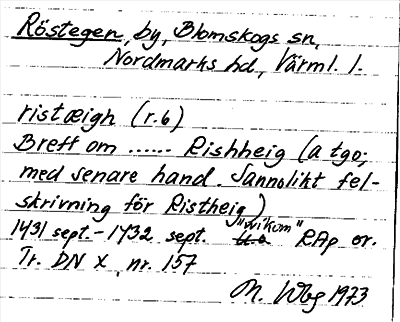 Röstegen, by, Blomskogs sn,
Nordmarks hd, Värml. l.
ristæigh (r. 6)
Breff om ...... Rishheig (a tgo;
med senare hand. Sannolikt fel-
skrivning för Ristheig)
1431 sept. - 1432 sept. "wikom" RAp or.
Tr. DN X, nr. 157
M. Wbg 1973